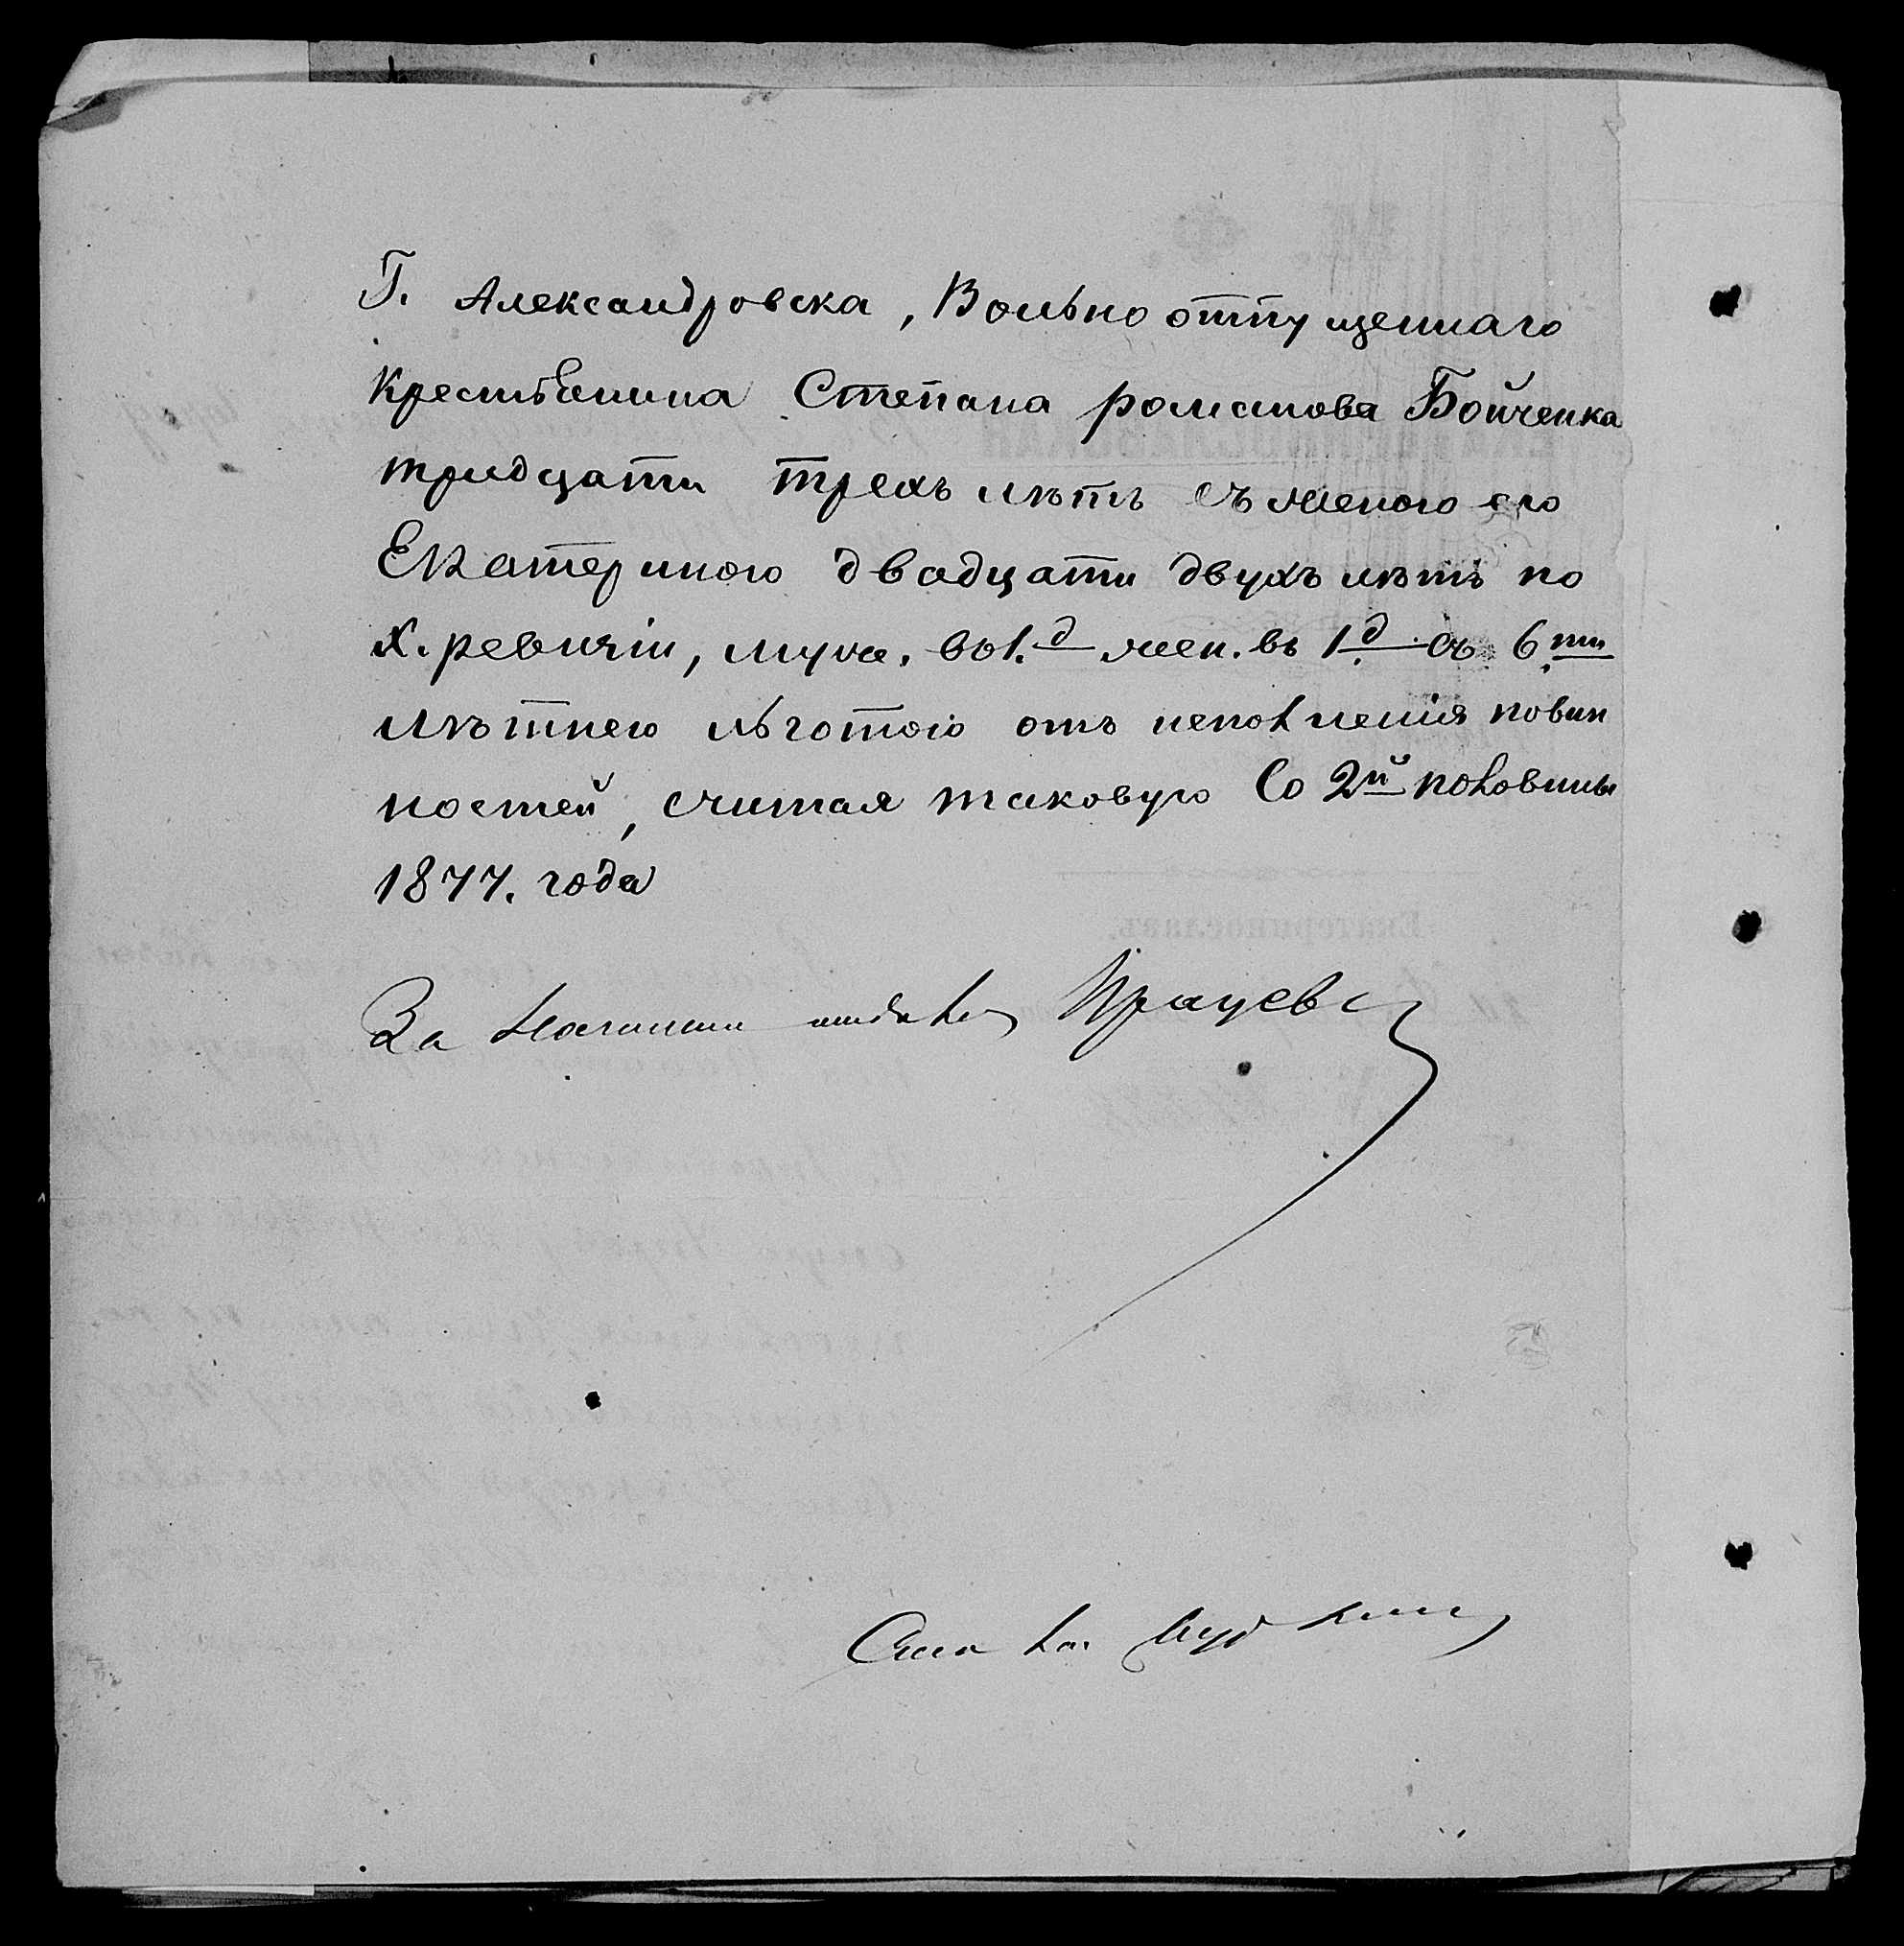 Г. Александровска, Вольно отпущеннаго
крестьянина Степана романова Бойченка
тридцати трехъ лѣтъ съ женою его
Екатериною двадцати двухъ лѣтъ по
X. ревизіи, муж. въ 1.д жен. въ 1.д съ 6.ти
лѣтнею льготою отъ исполненія повин
ностей, считая таковую Со 2й половины
1877. года
За